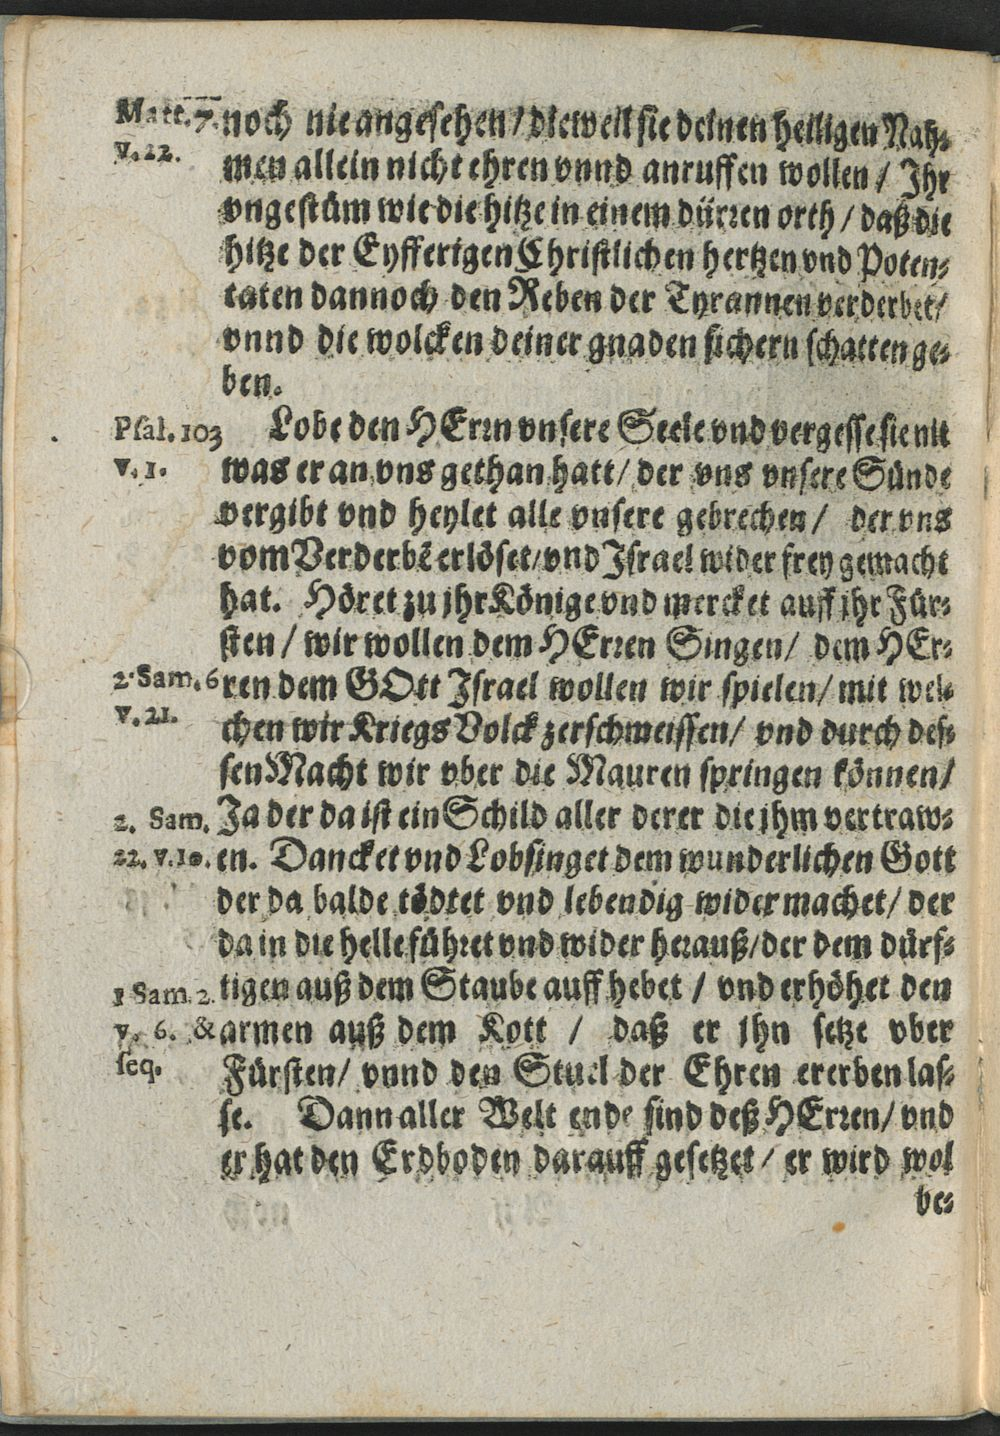 Matt. 7. noch nie angesehen / dieweil sie deinen heiligen Nah⸗
v. 22. men allein nicht ehren vnnd anruffen wollen / Ihr
vngestüm wie die hitze in einem dürren orth / daß die
hitze der Eyfferigen Christlichen hertzen vnd Poten⸗
taten dannoch den Reben der Tyrannen verderbet /
vnnd die wolcken deiner gnaden sichern schatten ge⸗
ben.
Psal. 103 Lobe den HErrn vnsere Seele vnd vergesse sie nit
v. 1. was er an vns gethan hatt / der vns vnsere Sünde
vergibt vnd heylet alle vnsere gebrechen / der vns
vom Verderbē erlöset / vnd Israel wider frey gemacht
hat. Höret zu jhr Könige vnd mercket auff jhr Für⸗
sten / wir wollen dem HErren Singen / dem HEr⸗
2. Sam. 6 ren dem GOtt Israel wollen wir spielen / mit wel⸗
v. 21. chen wir Kriegs Volck zerschmeissen / vnd durch des⸗
sen Macht wir vber die Mauren springen können /
2. Sam. Ja der da ist ein Schild aller derer die jhm vertraw⸗
22. v. 10. en. Dancket vnd Lobsinget dem wunderlichen Gott
der da balde tödtet vnd lebendig wider machet / der
da in die helle führet vnd wider herauß / der dem dürf⸗
1 Sam. 2. tigen auß dem Staube auff hebet / vnd erhöhet den
v. 6. & armen auß dem Kott / daß er jhn setze vber
seq. Fürsten / vnnd den Stuel der Ehren ererben las⸗
se. Dann aller Welt ende sind deß HErren / vnd
er hat den Erdboden darauff gesetzet / er wird wol
be⸗